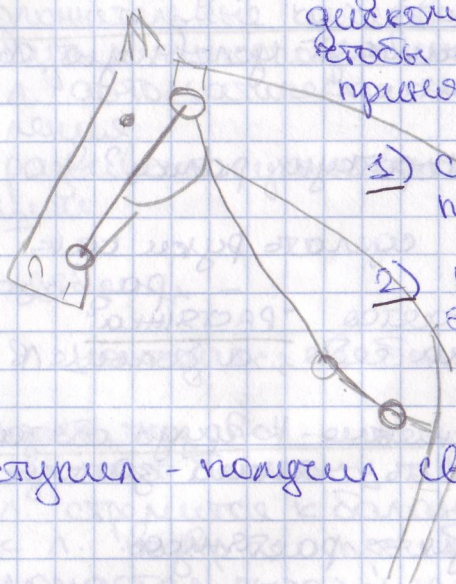 диском
чтобы
приня
1) С
п
2)
ступил - получил св